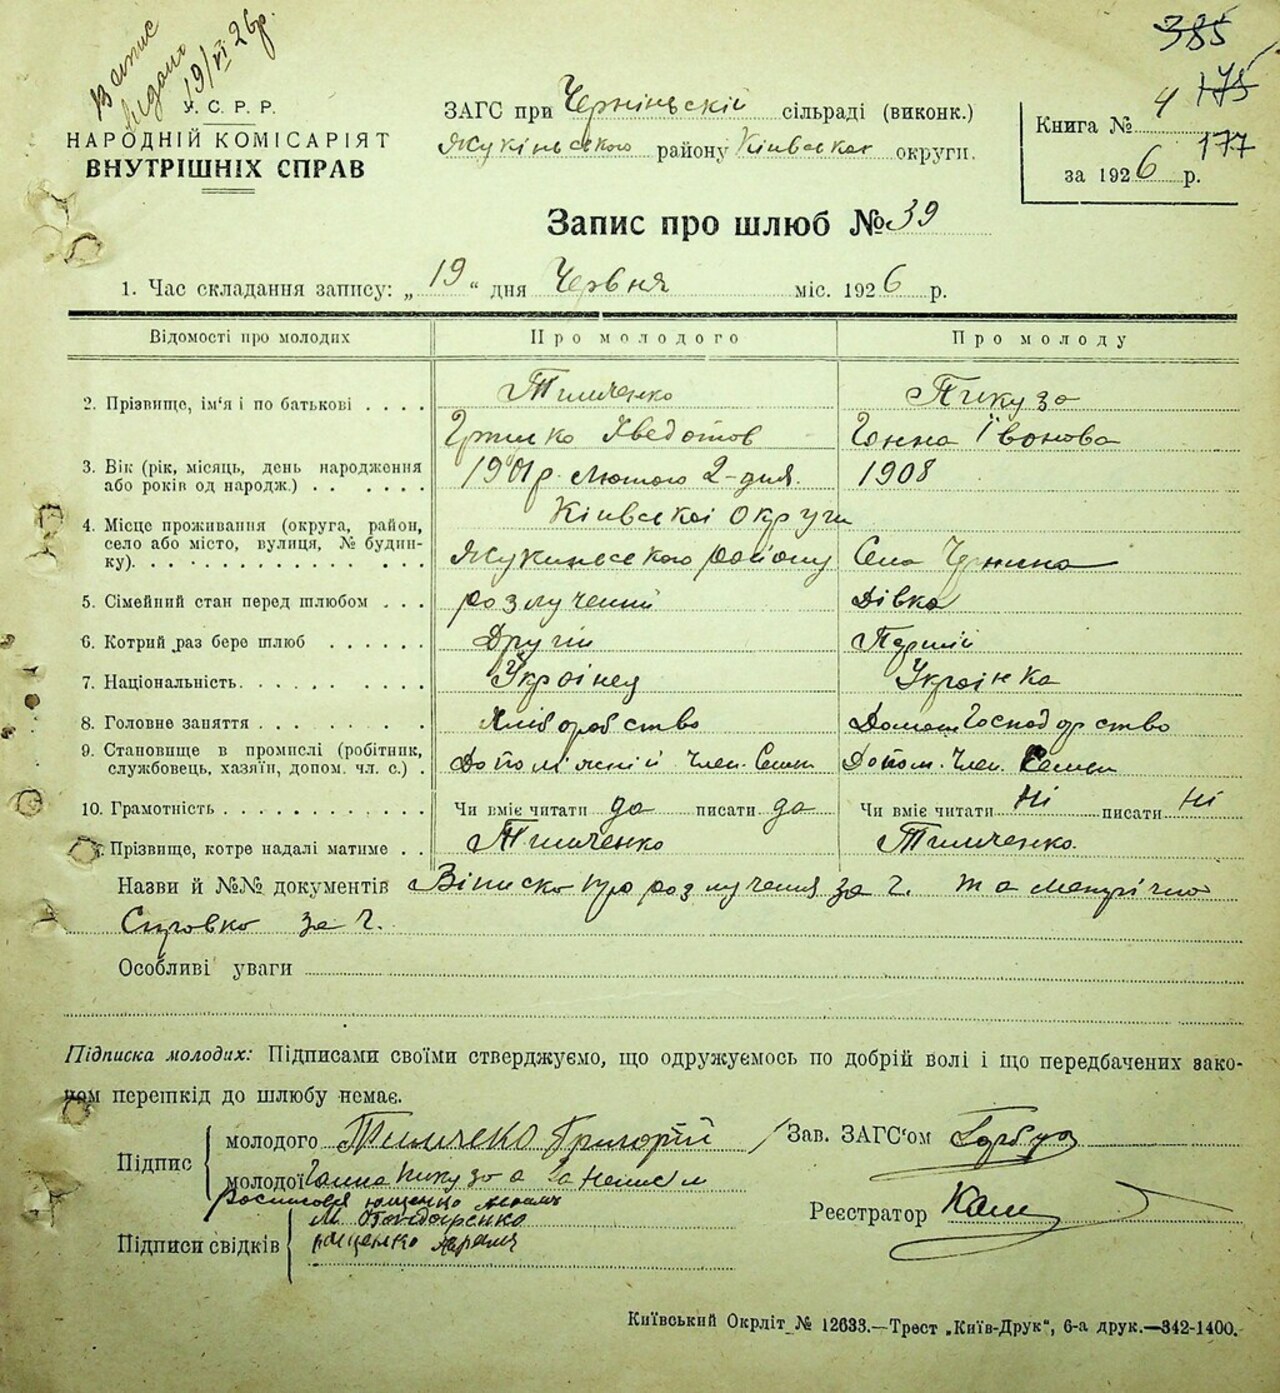 Витис
видано
19/VI 26р.
385
175
177
У.С.Р.Р.
НАРОДНІЙ КОМІСАРІЯТ
ВНУТРІШНІХ СПРАВ
ЗАГС при Черніньскій сільраді (виконк.)
Жукіньського району Київськоі округи.
Книга № 4
за 1926 р.
Запис про шлюб № 39
1. Час складання запису: „19“ дня Червня міс. 1926 р.
Відомості про молодих Про молодого Про молоду
2. Прізвище, ім'я і по батькові Тимченко Пикуза
Грицко Хведотов Ганна Івонова
3. Вік (рік, місяць, день народження 1901р. Лютого 2-дня. 1908
або років од народж.)
4. Місце проживання (округа, район, Київськоі Округи
село або місто, вулиця, № будин-
ку). Жукинського району Село Чернина
5. Сімейний стан перед шлюбом розлученний Дівка
6. Котрий раз бере шлюб Другий Первий
7. Національність Украінец Украінка
8. Головне заняття Хліборобство Домаш Господарство
9. Становище в промислі (робітник,
службовець, хазяїн, допом. чл. с.) Допоміжній Член. Семи Допом. Член. Семи
10. Грамотність Чи вміє читати да писати да Чи вміє читати Ні писати Ні
Прізвище, котре надалі матиме Тимченко Тимченко.
Назви й №№ документів Віписка про розлучення за Ч. та метрічна
Справка за Ч.
Особливі уваги
Підписка молодих: Підписами своїми стверджуємо, що одружуємось по добрій волі і що передбачених зако-
ном перешкід до шлюбу немає.
Підпис
молодого Тимчеко Григорій
молодої Ганна Пикузо а за неписм
росписався Ющенко
Підписи свідків
М Бондаренко
Ющенко
Зав. ЗАГС'ом Горбуз
Реєстратор
Київський Окрліт № 12633.—Трест „Київ-Друк“, 6-а друк.—342-1400.